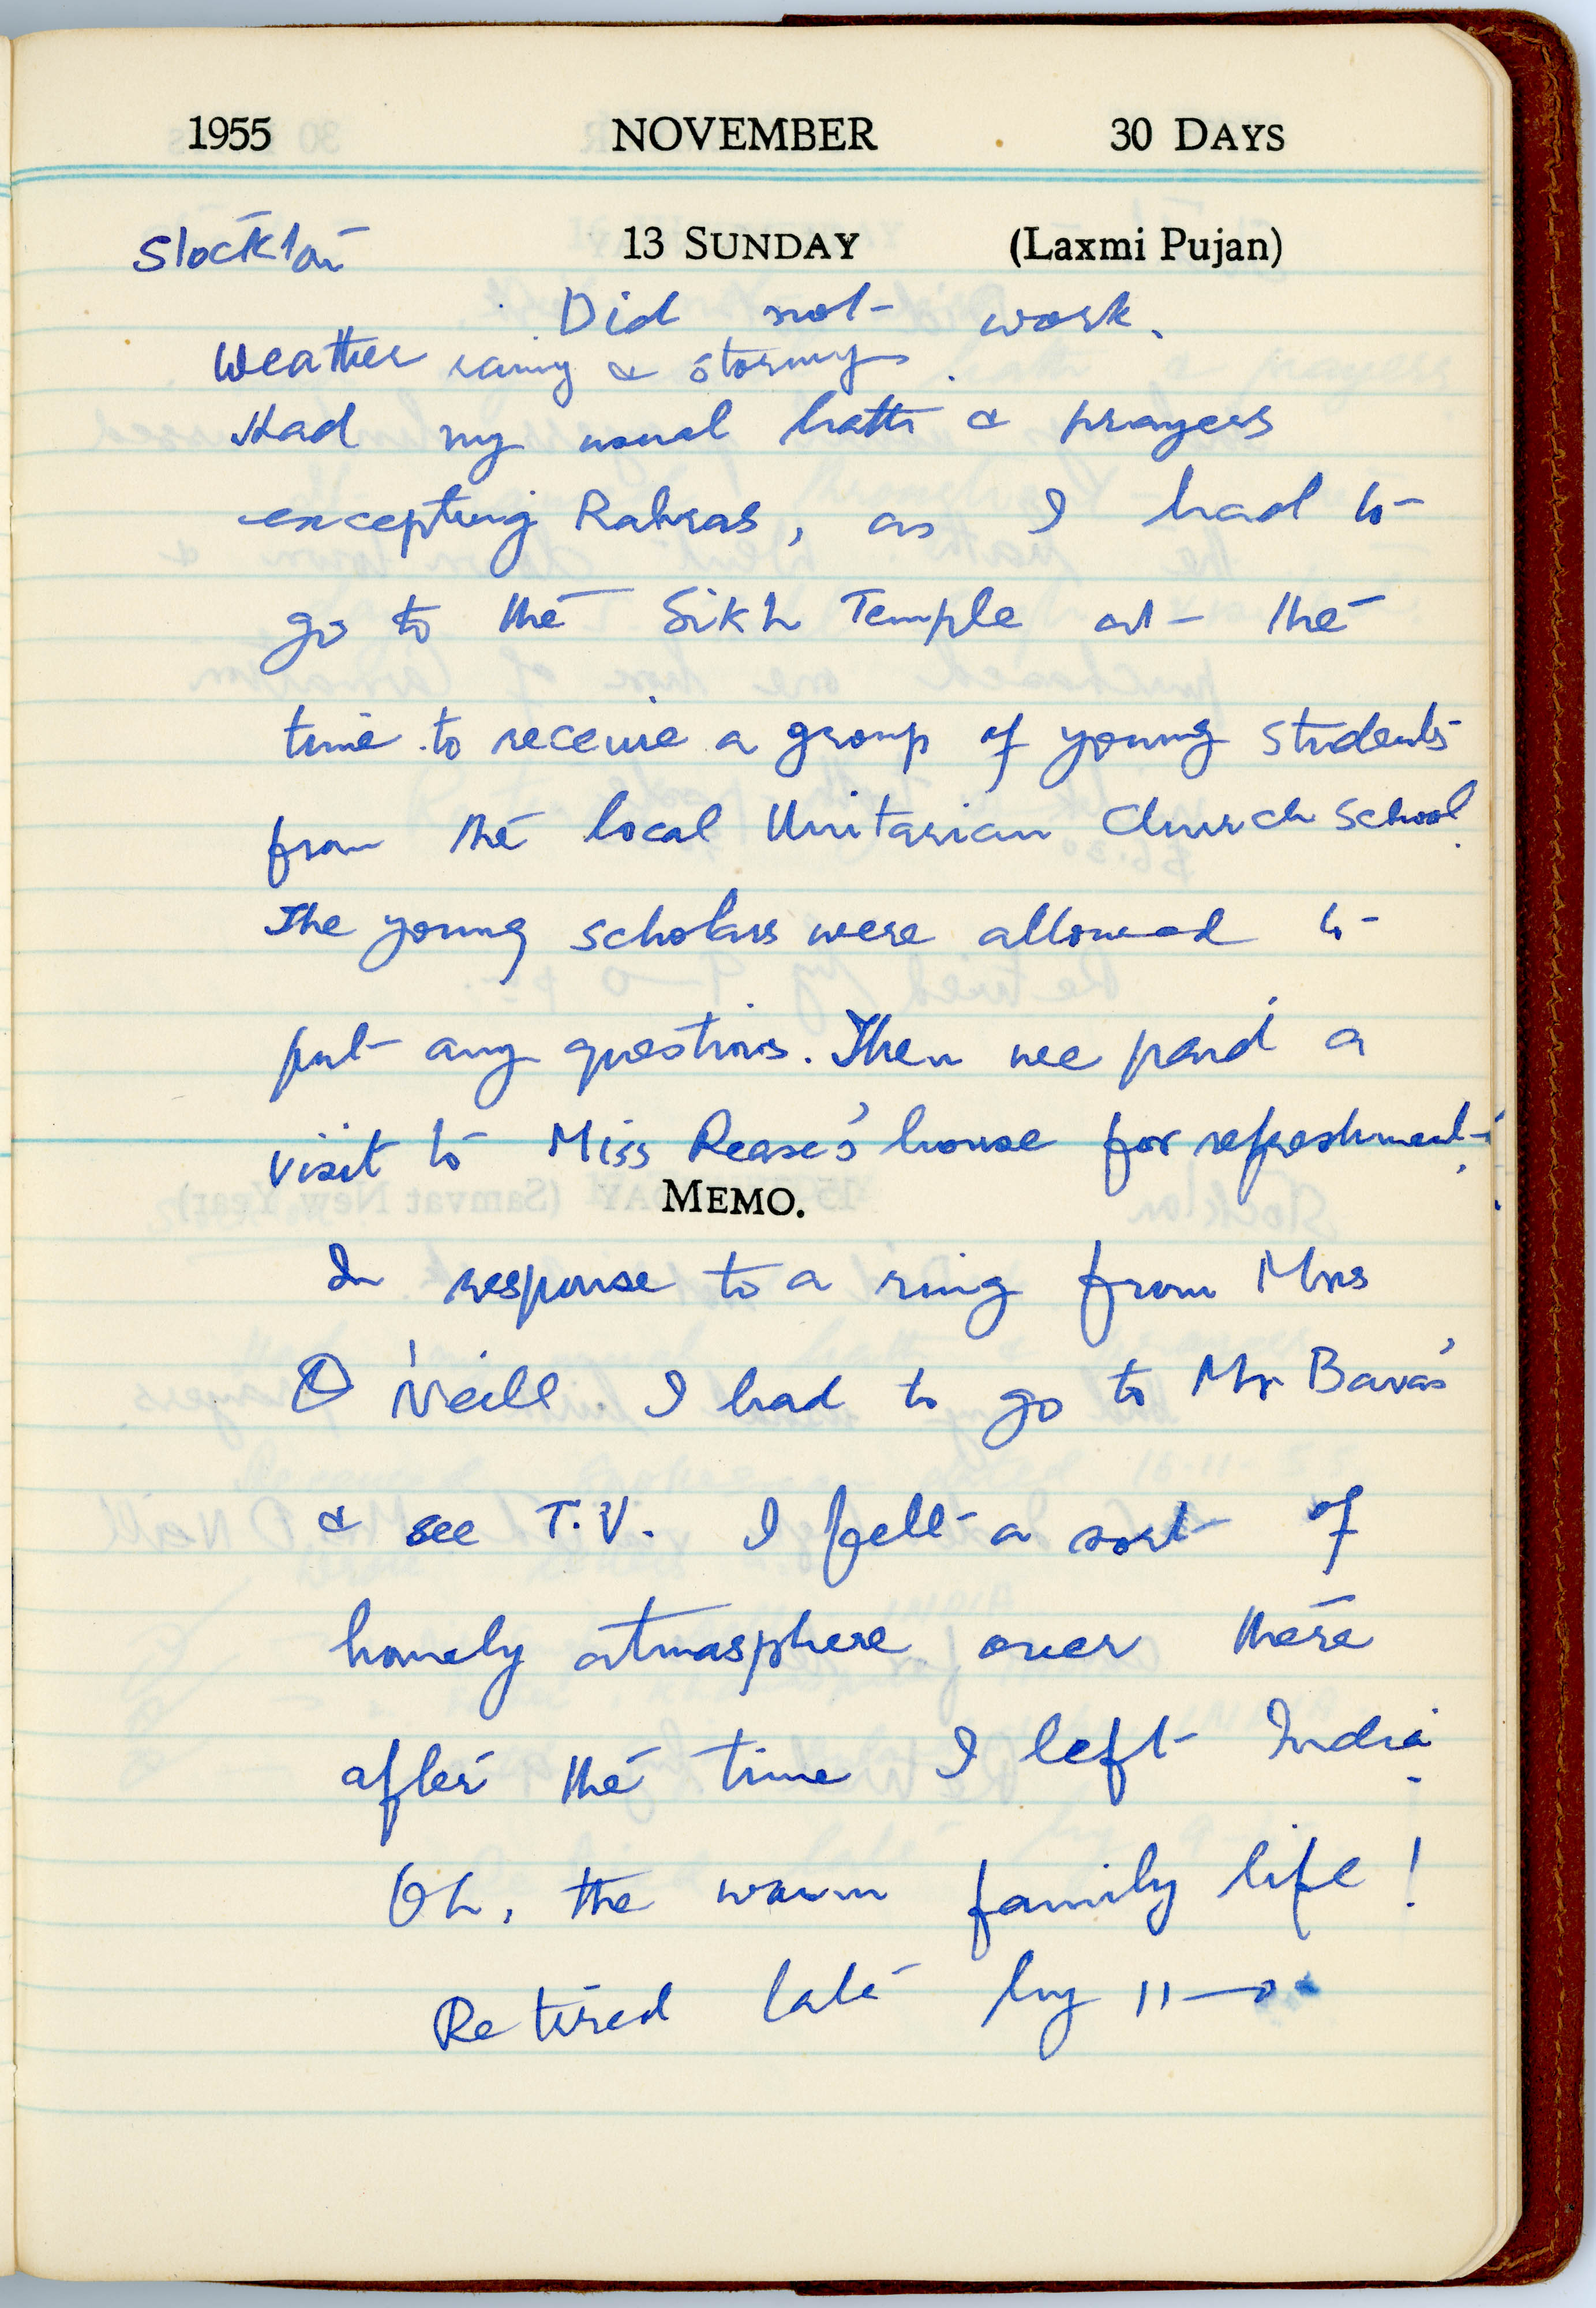 1955 NOVEMBER 30 DAYS
Stockton 13 SUNDAY (Laxmi Pujan)
Did not work.
Weather rainy & stormy.
Had my usual bath & prayers
excepting Rahras, as I had to
go to the Sikh Temple at the
time to receive a group of young students
from the local Unitarian Church School.
The young scholars were allowed to
put any questions. Then we paid a
visit to Miss Rease's house for refreshment.
MEMO.
In response to a ring from Mrs
O'Neill I had to go to Mr Bava's
& see T.V. I felt a sort of
homely atmosphere over there
after the time I left India.
Oh, the warm family life!
Retired late by 11-0